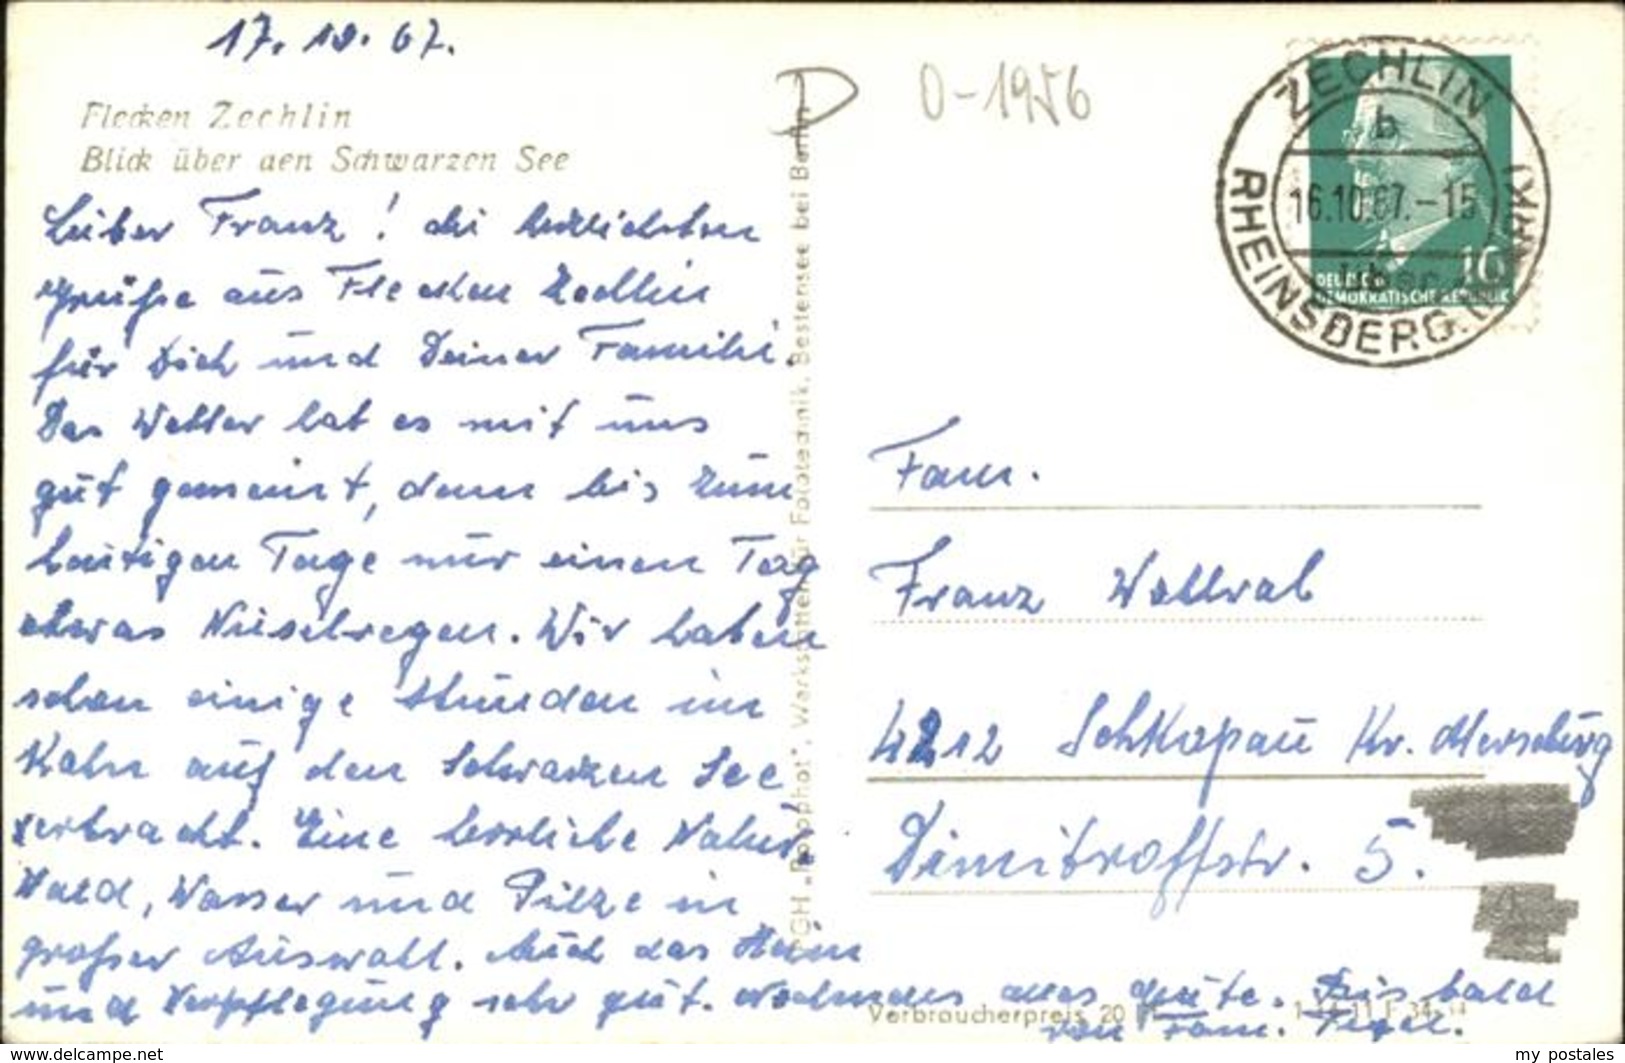 17. 10. 67.
Flecken Zechlin
Blick über den Schwarzen See
Lieber Franz! die herzlichsten
Grüße aus Flecken Zechlin
für Dich und Deiner Familie.
Das Wetter hat es mit uns
gut gemeint, denn bis zum
heutigen Tage nur einen Tag
etwas Nieselregen. Wir haben
schon einige Stunden im
Kahn auf den Schwarzen See
verbracht. Eine herrliche Natur.
Wald, Wasser und Pilze in
großer Auswahl. Auch das Heim
und Verpflegung sehr gut. Nochmals alles Gute. Bis bald
von Fam.
PGH „Rotophot", Werkstätten für Fototechnik, Bestensee bei Berlin
D
0-1956
ZECHLIN
b
16.10.67.-15
über
RHEINSBERG (MARK)
10
DEUTSCHE
DEMOKRATISCHE REPUBLIK
Fam.
Franz
4212 Schkopau Kr. Merseburg
Dimitroffstr. 5.
Verbraucherpreis 20
www.delcampe.net
my postales